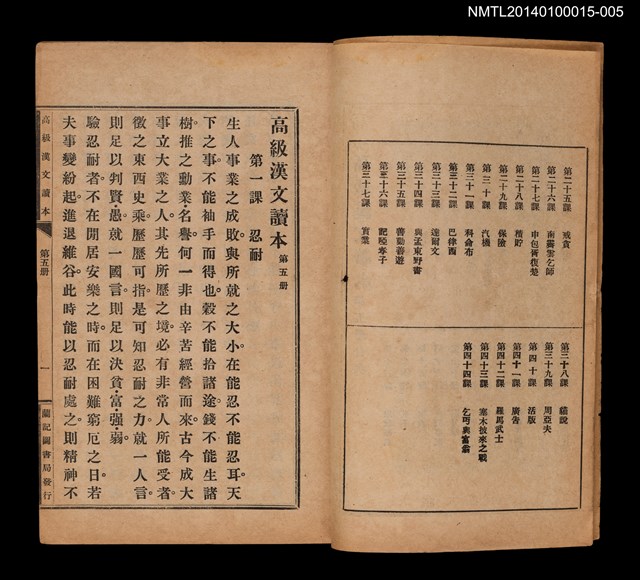 NMTL20140100015-005
第二十五課　戒貪
第二十六課　南霽雲乞師
第二十七課　申包胥復楚
第二十八課　積貯
第二十九課　保險
第三十課　汽機
第三十一課　科侖布
第三十二課　巴律西
第三十三課　達爾文
第三十四課　與孟東野書
第三十五課　善勤善遊
第三十六課　記啞孝子
第三十七課　實業
第三十八課　貓說
第三十九課　周亞夫
第四十課　活版
第四十一課　廣告
第四十二課　羅馬武士
第四十三課　塞木披來之戰
第四十四課　乞丐與富翁
高級漢文讀本　第五册
第一課　忍耐
生人事業之成敗。與所就之大小。在能忍不能忍耳。天
下之事。不能袖手而得也。穀不能拾諸途。錢不能生諸
樹。推之動業名譽。何一非由辛苦經營而來。古今成大
事立大業之人。其先所歷之境。必有非常人所能受者。
徵之東西史乘。歷歷可指。是可知忍耐之力。就一人言。
則足以判賢愚。就一國言。則足以決貧富强弱。
驗忍耐者。不在閒居安樂之時。而在困難窮厄之日。若
夫事變紛起。進退維谷。此時能以忍耐處之。則精神不
高級漢文讀本　第五册　一　蘭記圖書局發行